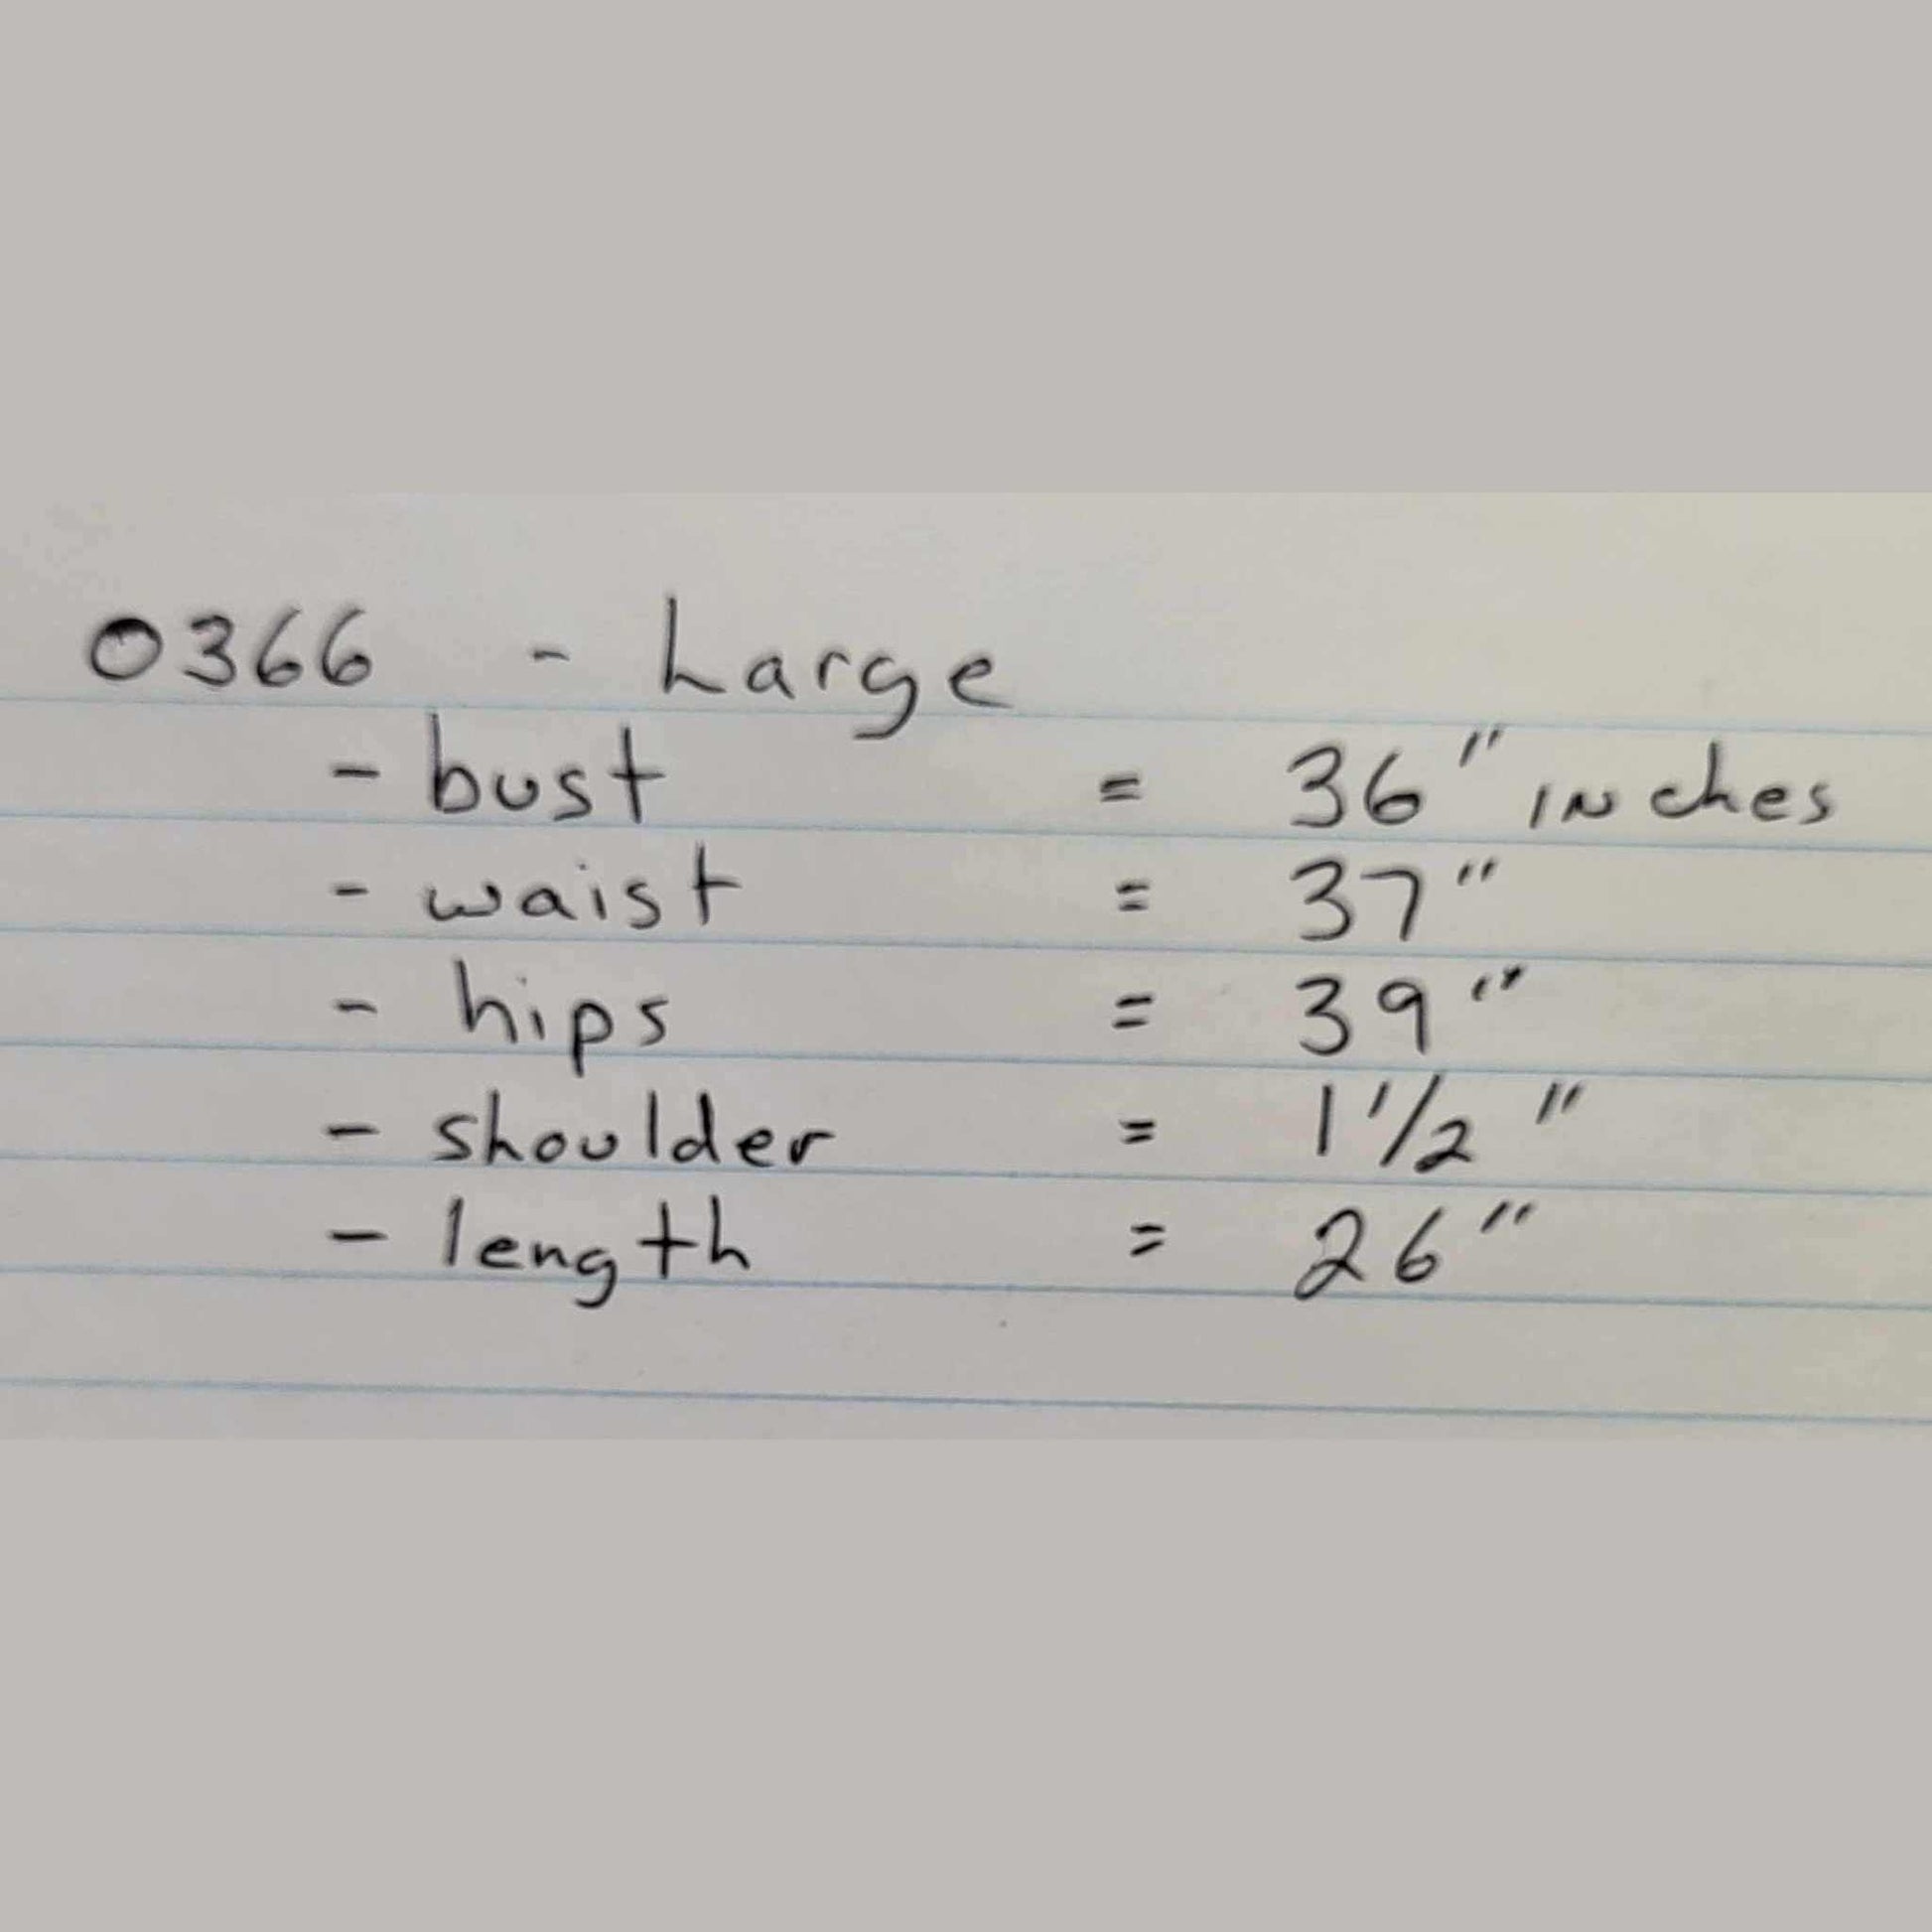 0366 - Large
- bust = 36" inches
- waist = 37"
- hips = 39"
- shoulder = 1 1/2"
- length = 26"